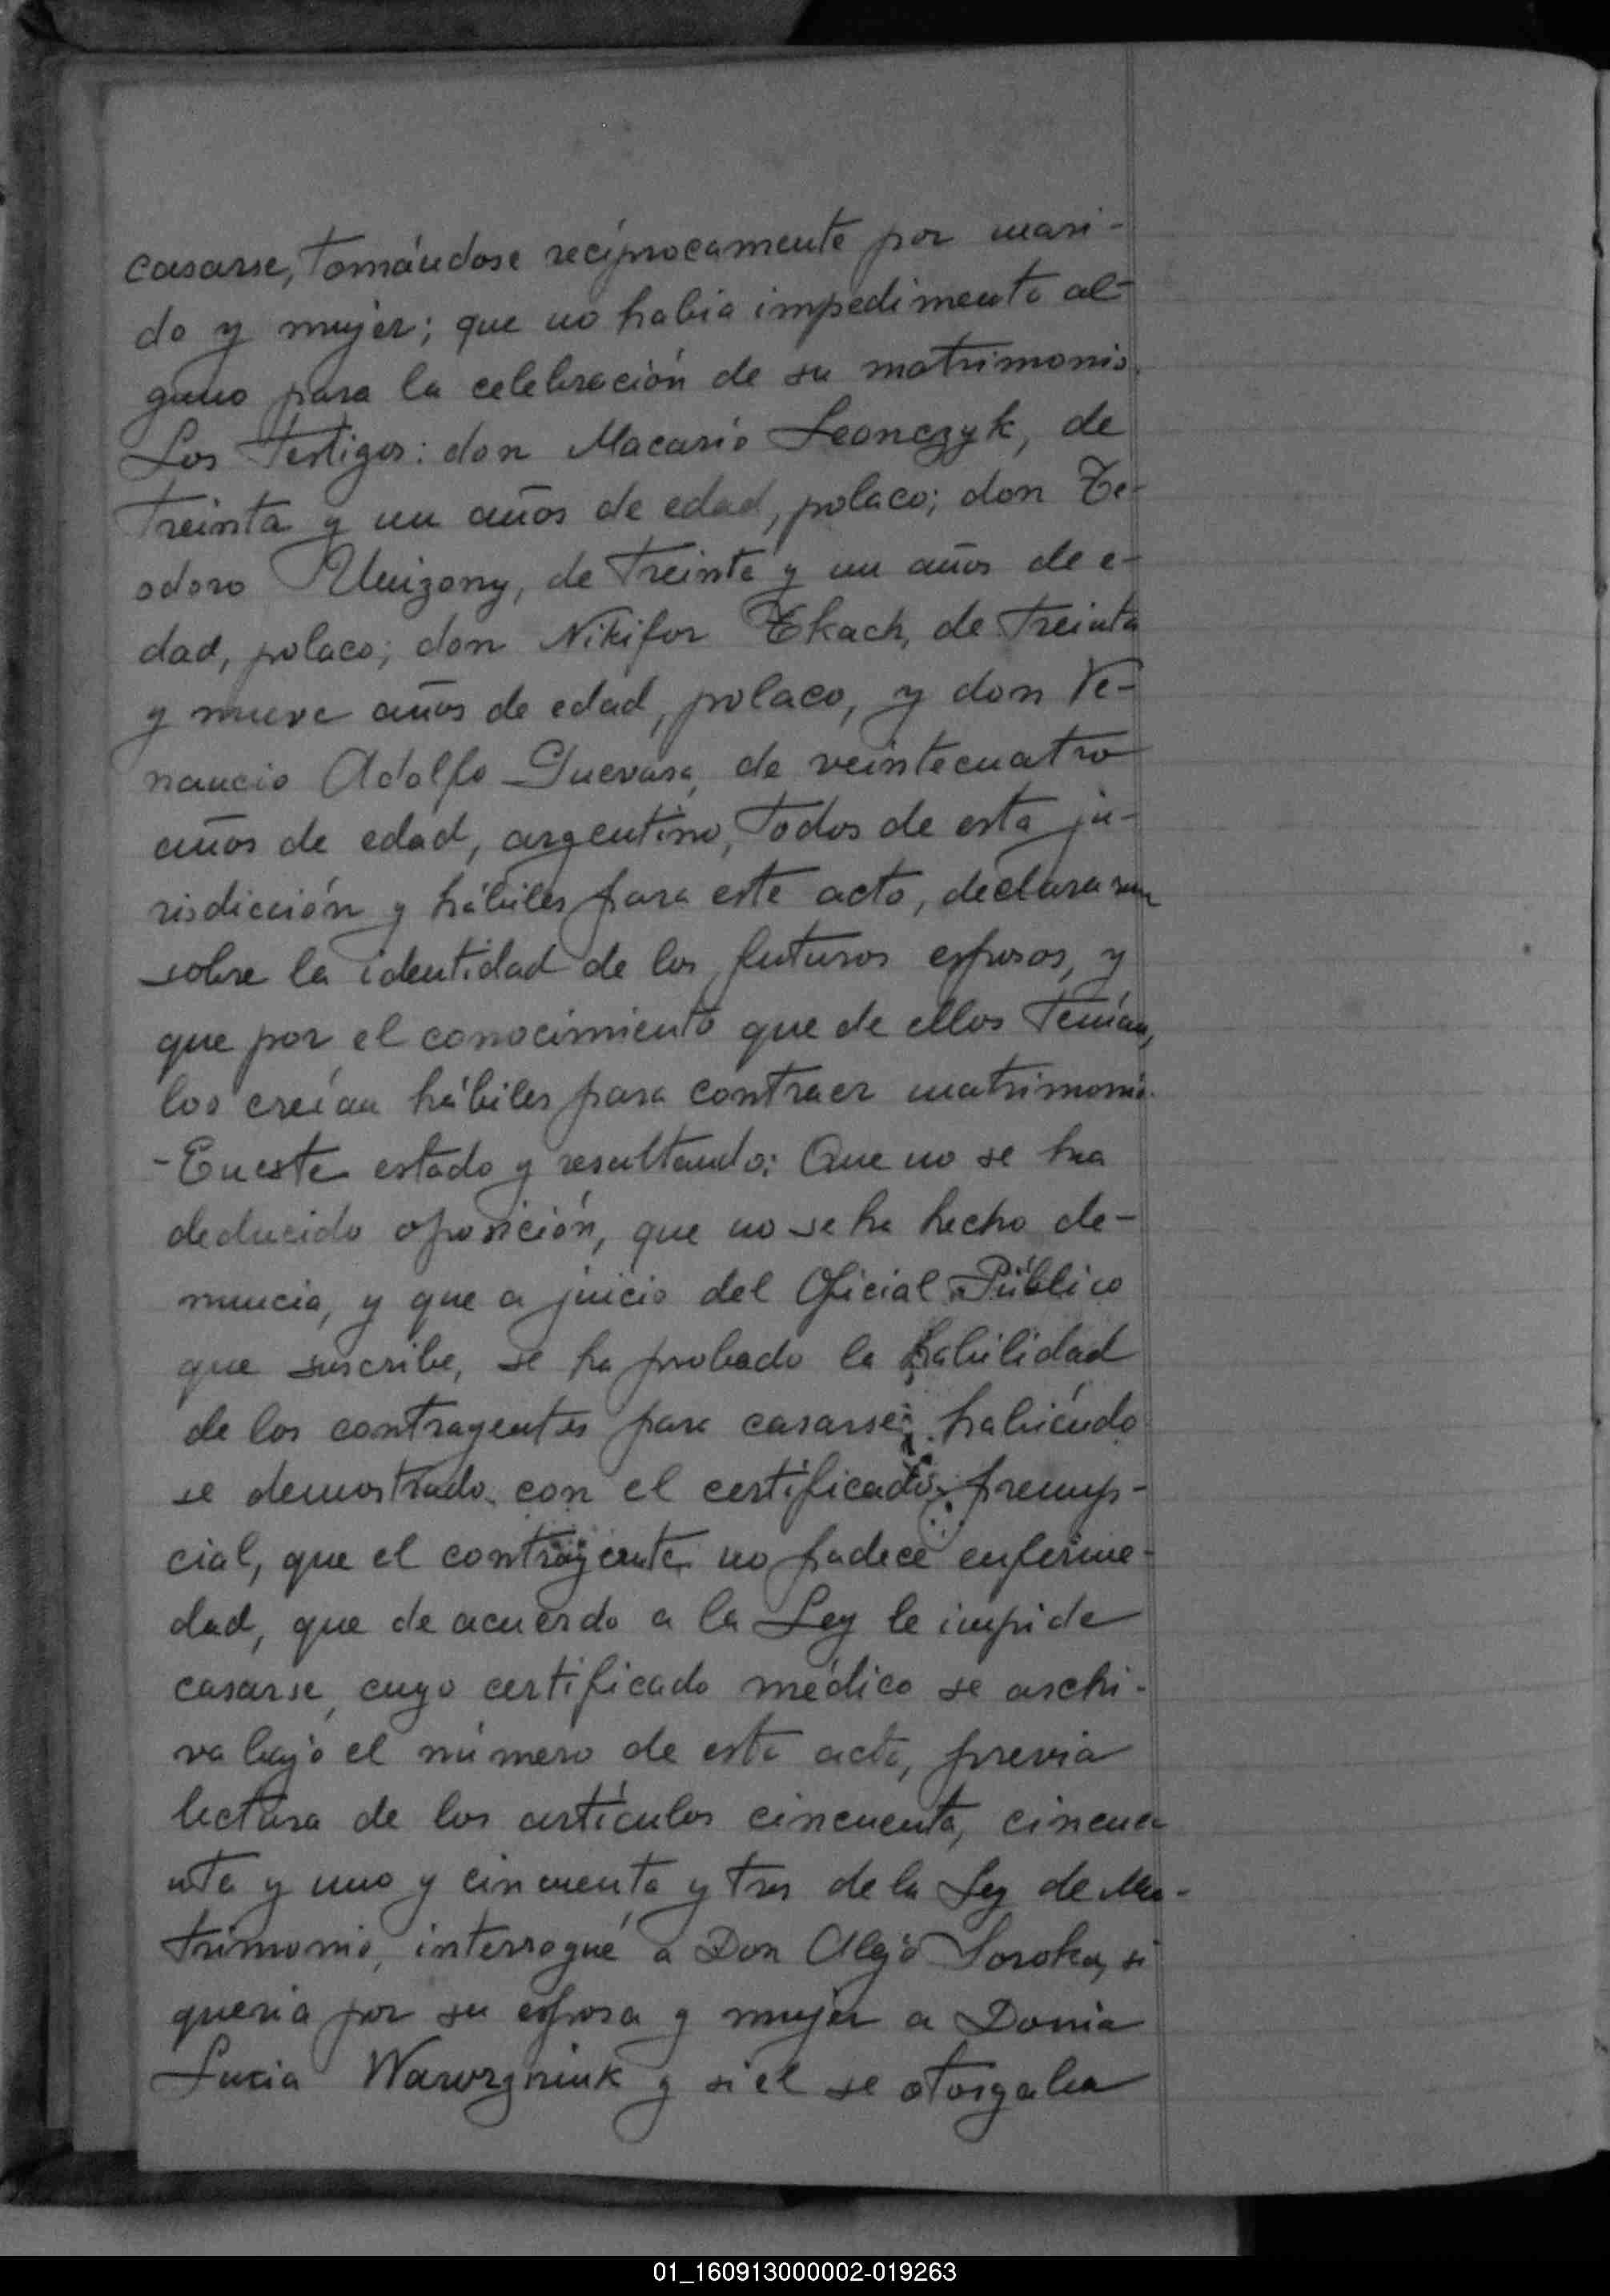 casarse, tomándose recíprocamente por mari-
do y mujer; que no habia impedimento al-
guno para la celebración de su matrimonio.
Los testigos: don Macario Leonczyk, de
treinta y un años de edad, polaco; don Te-
odoro de treinta y un años de e-
dad, polaco; don Nikifor Tkach, de treinta
y nueve años de edad, polaco, y don Ve-
nancio Adolfo Guevara, de veintecuatro
años de edad, argentino, todos de esta ju-
risdicción y hábiles para este acto, declararon
sobre la identidad de los futuros esposos, y
que por el conocimiento que de ellos tenían,
los creían hábiles para contraer matrimonio.
-En este estado y resultando: Que no se ha
deducido oposición, que no se ha hecho de-
nuncia, y que a juicio del Oficial Público
que suscribe, se ha probado la habilidad
de los contrayentes para casarse; habiéndo
se demostrado con el certificado prenup-
cial, que el contrayente no padece enferme-
dad, que de acuerdo a la Ley le impide
casarse, cuyo certificado médico se archi-
va bajo el número de esta acta, previa
lectura de los artículos cincuenta, cincue
nta y uno y cincuenta y tres de la Ley de Ma-
trimonio, interrogué a Don Alejo Soroka, si
queria por su esposa y mujer a Donia
Lucia Wawrzyniuk y si el se otorgaba